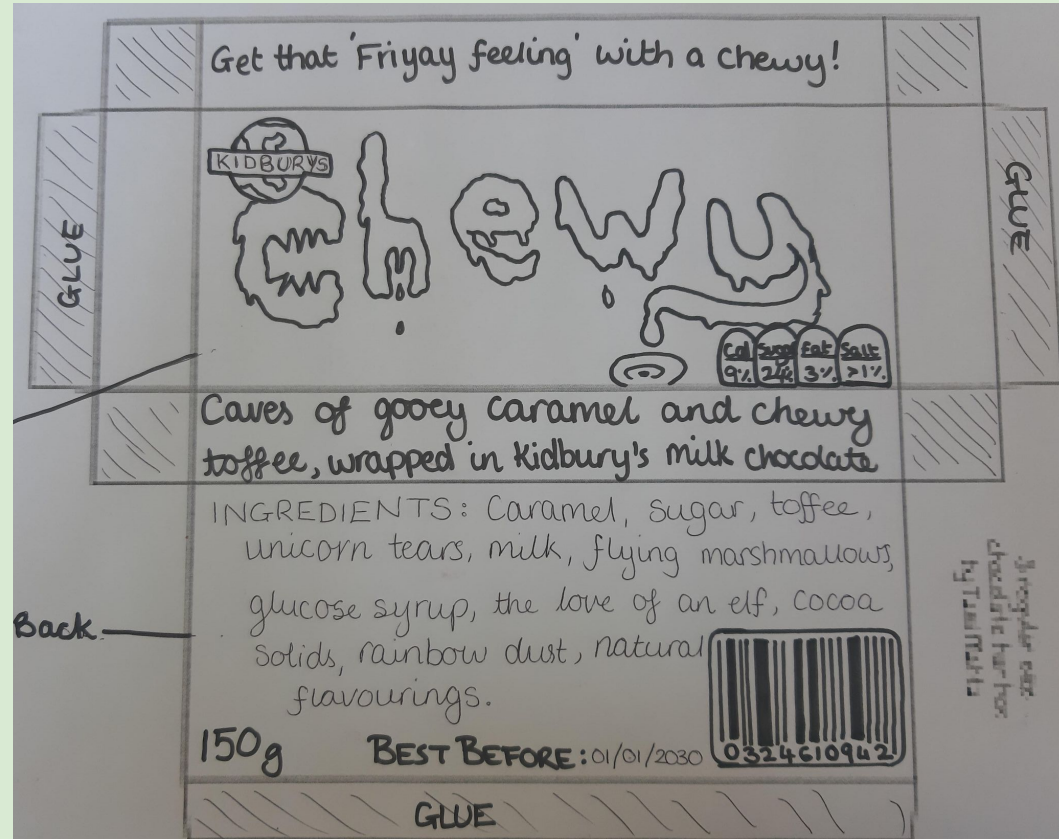 Get that 'Friyay feeling' with a chewy!
KIDBURYS
Chewy
GLUE
GLUE
Cal Sugar Fat Salt
9% 24% 3% >1%
Caves of gooey caramel and chewy
toffee, wrapped in Kidbury's milk chocolate
INGREDIENTS: Caramel, sugar, toffee,
unicorn tears, milk, flying marshmallows,
glucose syrup, the love of an elf, cocoa
solids, rainbow dust, natural
flavourings.
Back
150g
BEST BEFORE: 01/01/2030
0324610942
GLUE